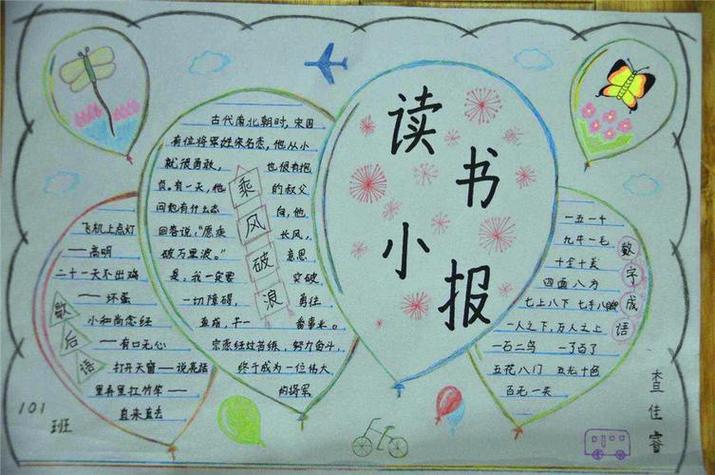 读书小报
古代南北朝时，宋国
有位将军姓宗名悫，他从小
就很勇敢， 也很有抱
负。有一天，他 的叔父
问他有什么志 向，他
回答说，“愿乘 长风，
破万里浪。” 意思
是，我一定要 突破
一切障碍， 勇往
直前，干一 番事业。
宗悫经过苦练，努力奋斗，
终于成为一位伟大
的将军
乘风破浪
飞机上点灯
——高明
二十一天不出鸡
——坏蛋
小和尚念经
——有口无心
打开天窗——说亮话
里弄里扛竹竿——
直来直去
歇后语
一五一十
九牛一毛
十全十美
四面八方
七上八下 七手八脚
一人之下，万人之上
一石二鸟 一了百了
五花八门 五光十色
百无一失
数字成语
101
班
查佳睿